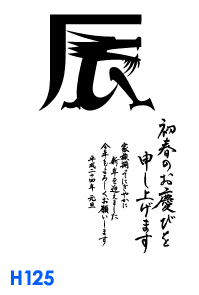 辰
初春のお慶びを
申し上げます
家族揃ってにぎやかに
新年を迎えました
今年もよろしくお願いします
平成二十四年 元旦
H125